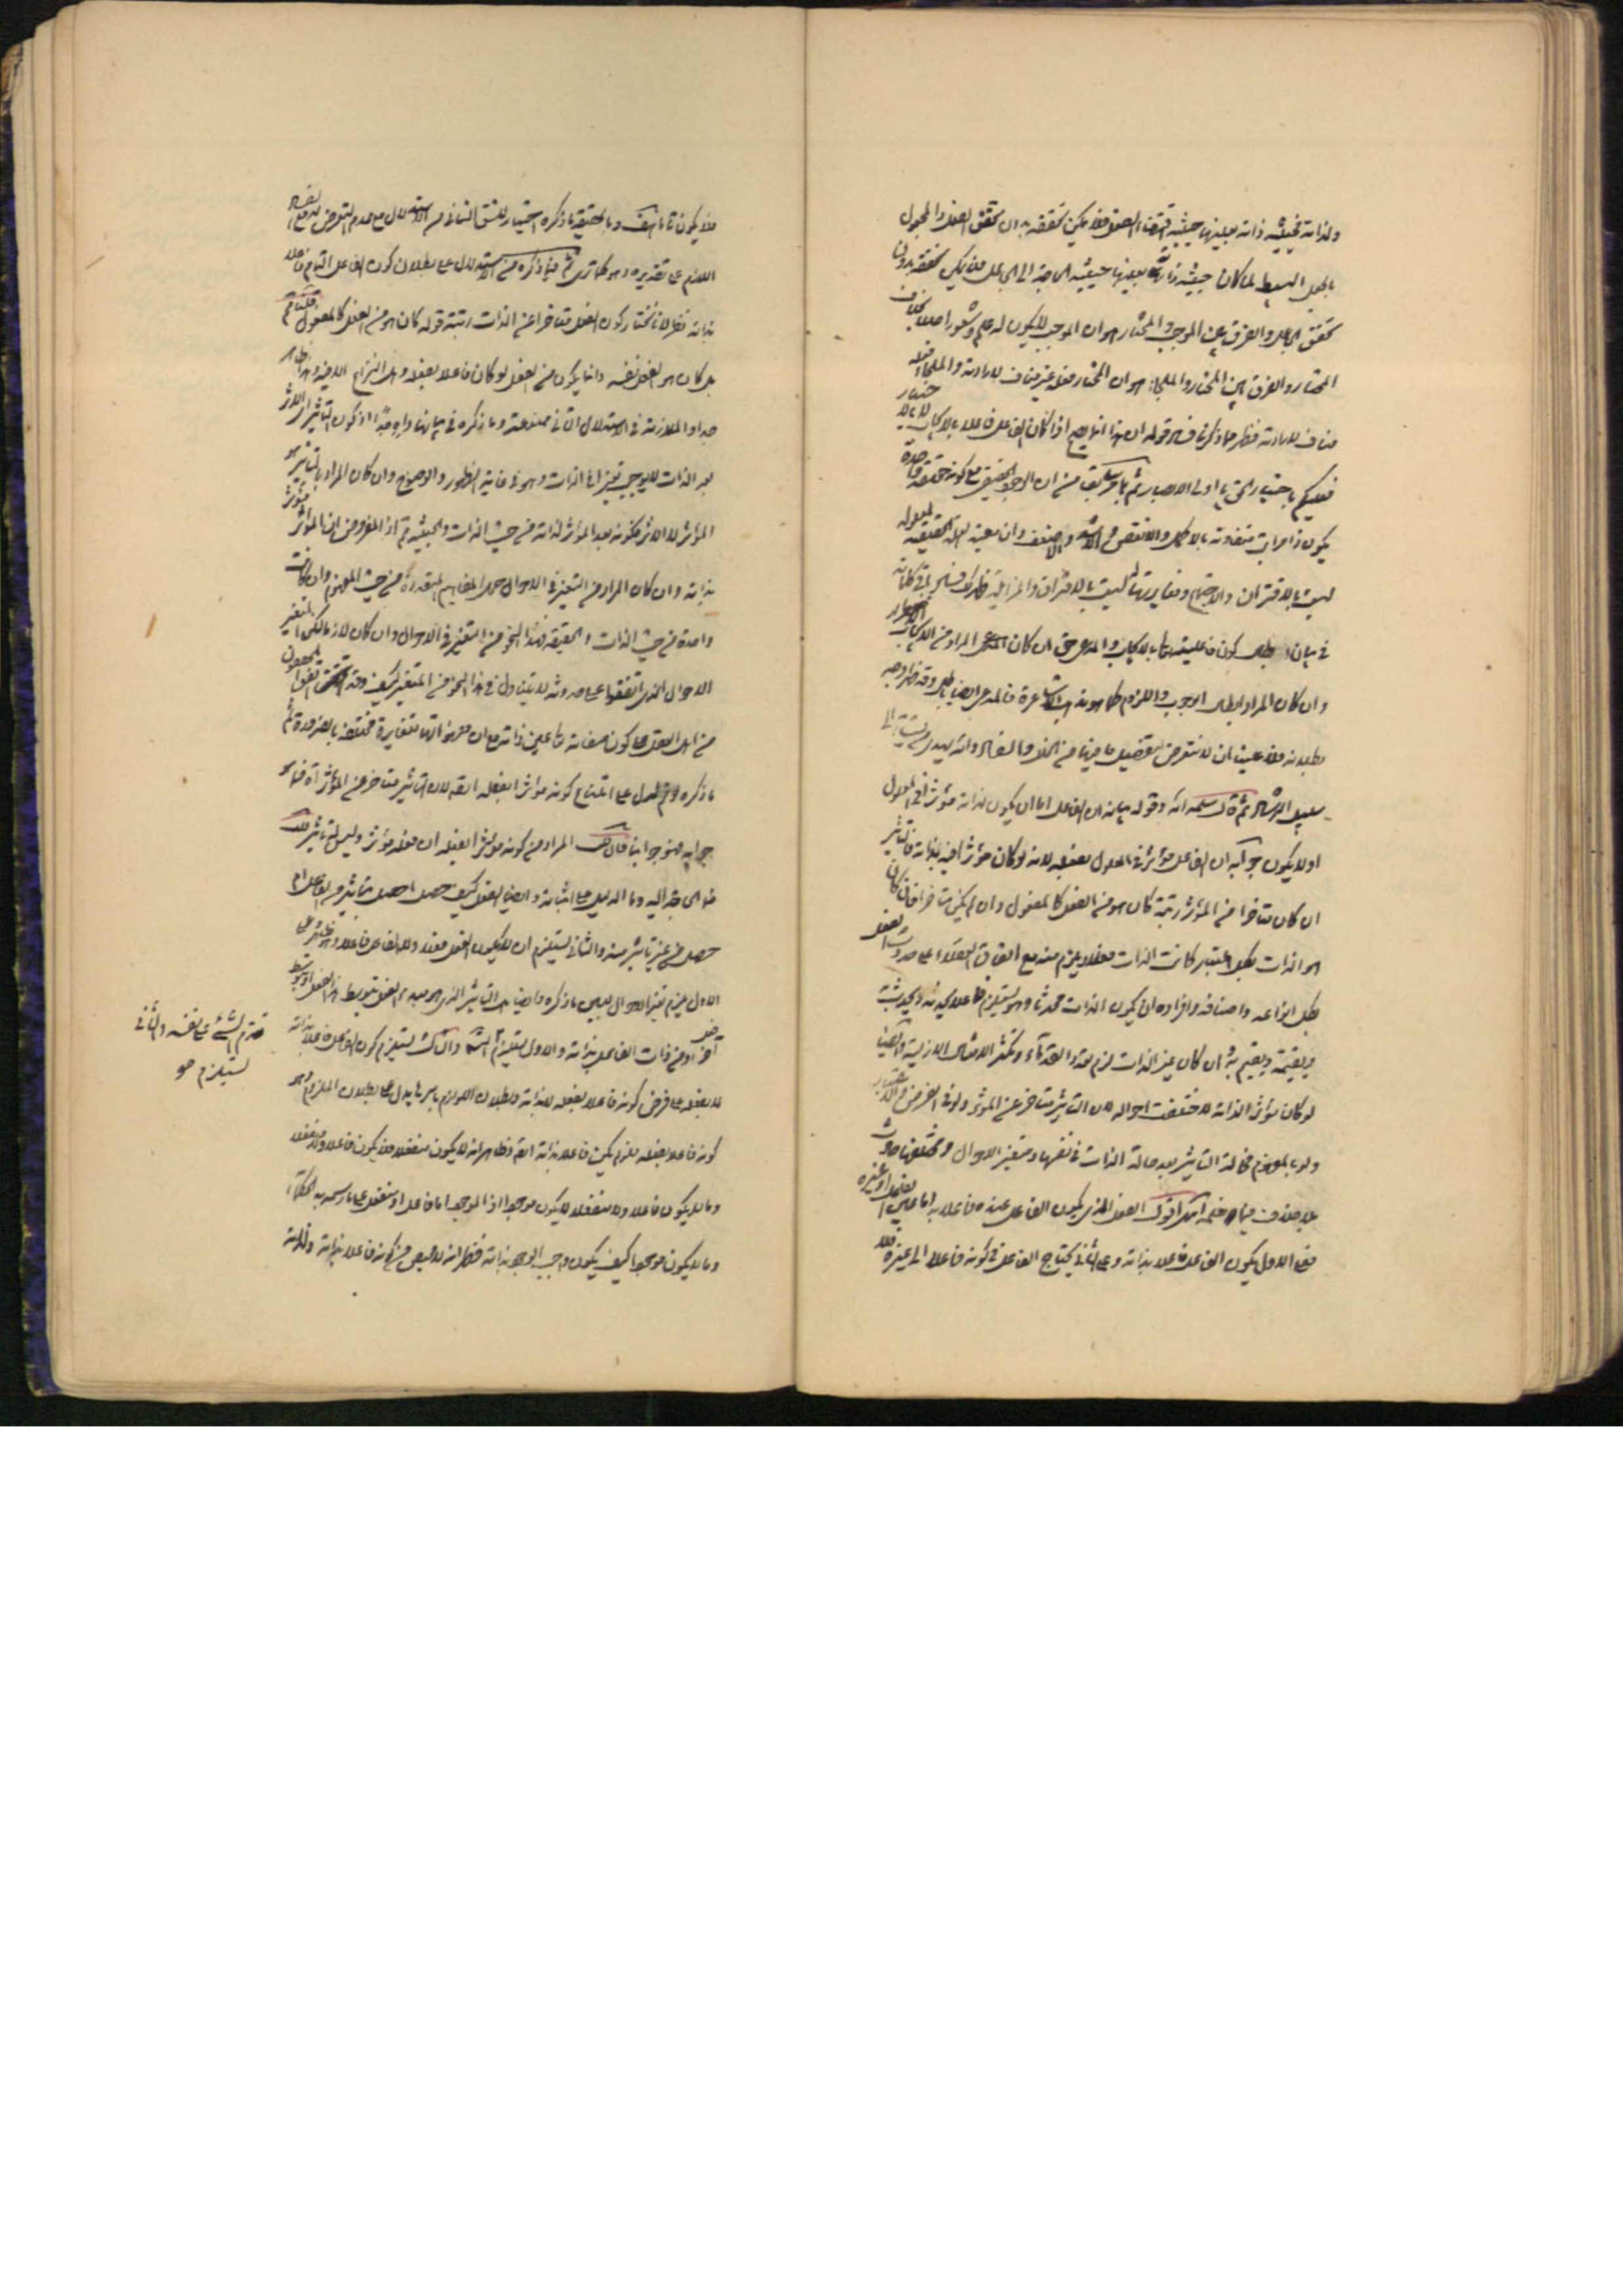 ولذاته فحيثية ذاته بعينها حيثية اقتضاء الفعل فلا يمكن تحققه بدون تحقق الفعل والمجعول
بالجعل البسيط لما كان حيثية ذاته بعينها حيثية الحاجة الى الجاعل فلا يمكن تحققه بدون
تحقق الجاعل والفرق بين الموجب والمختار هو ان الموجب لا يكون له علم وشعور اصلا بخلاف
المختار والفرق بين المختار والملجاء هو ان المختار فعله غير مناف لارادته والملجاء فعله
مناف لارادته فظهر مما ذكرنا فساد قوله ان هذا انما يصح اذا كان الفاعل فاعلا بالايجاب لا بالاختيار
فعليكم باختيار الحق يا اولى الابصار ثم ما سبق من ان الوجود الحقيقي مع كونه حقيقة واحدة
يكون ذا مراتب متفاوتة بالاكمل والانقص والاشد والاضعف وان معية العلة الحقيقية لمعلوله
ليست بالاقتران والاجتماع ومغايرتها له ليست بالافتراق والمزايلة
في بيان ابطال كون فاعليته تعالى بالايجاب والمدعى حق ان كان المراد من الايجاب الاضطرار
وان كان المراد ابطال الوجوب واللزوم كما هو مذهب الاشاعرة فالمدعى ايضا باطل
بطلانه فلا علينا ان لا نتعرض لتفصيل ما فيها من الخلل والفساد والله يهدي من يشاء الى
سبيل الرشاد ثم قال سلمه الله وقوله بيانه ان الفاعل اما ان يكون لذاته مؤثرا في المعلول
او لا يكون جوابه ان الفاعل مؤثر في المعلول بفعله لانه لو كان مؤثرا فيه بذاته فالتأثير
ان كان متأخرا من المؤثر رتبة كان هو من الفعل كالمفعول وان لم يكن متأخرا فان كان
هو الذات بكل اعتبار كانت الذات فعلا ويلزم منه مع اتفاق العقلاء على حدوث الفعل
بكل انواعه واصنافه وافراده ان يكون الذات محدثا وهو يستلزم فاعلا يحدثه
وان كان غير الذات لزم تعدد القدماء وتكثر الامثال الازلية وايضا
لو كان مؤثرا لذاته لاختلفت احواله لان التأثير متأخر عن المؤثر ولو في الفرض والاعتبار
ولو بالمفهوم فحالة التأثير بعد حالة الذات في نفسها ومتغير الاحوال ومختلفها حادث
بلا خلاف فيها انتهى اقول الفعل الذي يكون الفاعل عنده فاعلا به اما عين الفاعل او غيره
فعلى الاول يكون الفاعل فاعلا بذاته وعلى الثاني يحتاج الفاعل في كونه فاعلا الى غيره فلا
فلا يكون تاما وبالحقيقة ما ذكره اختيار للشق الثاني من الاستدلال مع عدم التعرض لدفع الفساد
اللازم على تقديره وهو كما ترى ثم فيما ذكره من الاستدلال على بطلان كون الفاعل التام فاعلا
بذاته نظر لانا نختار كون الفعل متأخرا عن الذات رتبة قوله كان هو من الفعل كالمفعول قلنا نعم
بل كان هو الفعل نفسه وانما يكون من الفعل لو كان فاعلا بفعله وهل النزاع الا فيه وهذا ظاهر
جدا والملازمة في الاستدلال الثاني ممنوعة وما ذكره في بيانها واه جدا اذ كون التأثير اي الاثر
بعد الذات لا يوجب تغيرا في الذات وهو في غاية الظهور والوضوح وان كان المراد بالتأثير هو
المؤثر لا الاثر فكونه بعد المؤثر لذاته من حيث الذات والحيثية ثم اذ المفروض ان المؤثر مؤثر
بذاته وان كان المراد من التغير في الاحوال حمل المفاهيم المتعددة من حيث المفهوم وان كانت
واحدة من حيث الذات والحقيقة فهذا النحو من التغير في الاحوال وان كان لازما لكن المتغير
الاحوال الذي اتفقوا على حدوثه لا يتناول في هذا النحو من المتغير كيف وقد اتفق المحققون
من اهل العقل على كون صفاته تعالى عين ذاته مع ان مفهوماتها متغايرة مختلفة بالضرورة ثم
ما ذكره لو تم لدل على امتناع كونه مؤثرا بفعله ايضا لان التأثير متأخر عن المؤثر اه فما هو
جوابه فهو جوابنا فان قلت المراد من كونه مؤثرا بفعله ان فعله مؤثر وليس له تأثير قلت
فما الحاجة اليه وما الدليل على اثباته وايضا الفعل كيف حصل احصل بتأثير من الفاعل ام
حصل من غير تأثير منه والثاني يستلزم ان لا يكون الفعل فعله ولا الفاعل فاعلا وهو ظاهر على
الاول يلزم تغير الاحوال بعين ما ذكره وايضا هذا التأثير الذي هو مبدء الفعل بتوسط هذا الفعل او بتوسط
آخر او من ذات الفاعل بذاته والاول يستلزم والثالث يستلزم كون الفاعل فاعلا بذاته
لا بفعله على فرض كونه فاعلا بفعله لا بذاته وبطلان اللوازم باسرها يدل على بطلان الملزوم وهو
كونه فاعلا بفعله فلو لم يكن فاعلا بذاته ايضا وظاهر انه لا يكون منفعلا فلا يكون فاعلا ولا منفعلا
وما لا يكون فاعلا ولا منفعلا لا يكون موجودا اذ الموجود اما فاعل او منفعل على ما رسمه به الحكماء
وما لا يكون موجودا كيف يكون واجب الوجود بذاته فظهر انه لا محيص من كونه فاعلا بذاته ولذاته
تقدم الشئ على نفسه والثاني
يستلزم